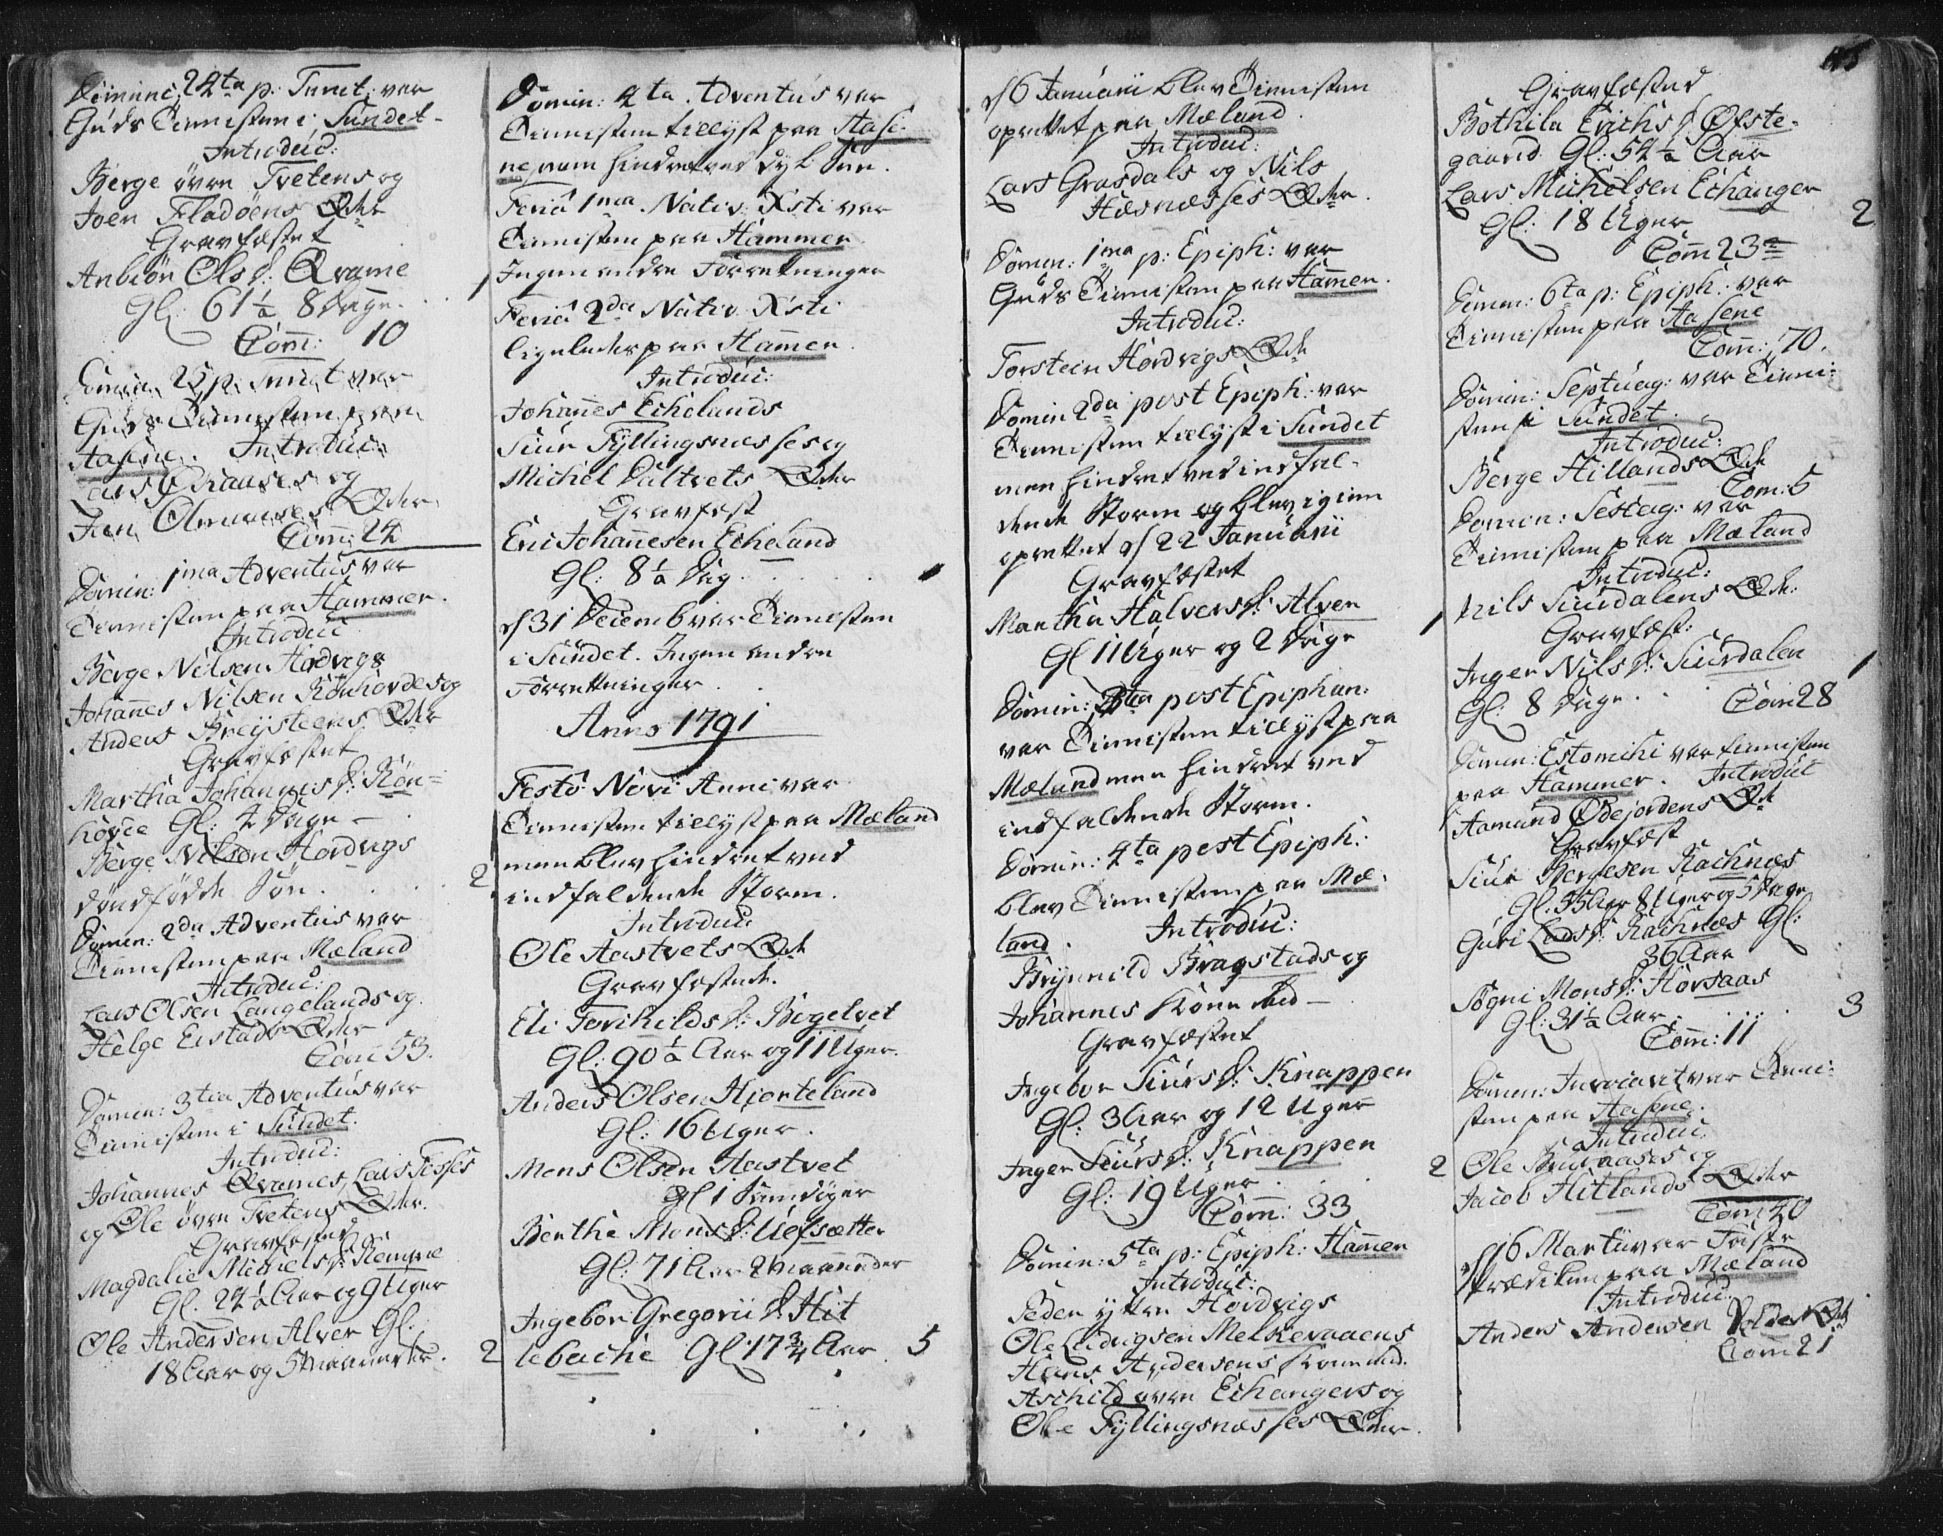 Dominic: 24ta p: Trinit: var
Guds Tienisten i Sundet
Introduc:
Berge øvre Tvetens og
Joen Fladøens Qder
Gravfæstet
Anbiør Ols d: Qvame
Gl: 61 ½ 8 Dage. 1
Com: 10
Domin: 25 p: Trinit var
Guds Tienisten paa
Aasene. Introduc:
Lars og
Qder
Com: 24
Domin: 1ma Adventus var
Tienisten paa Hammer.
Introduc
Berge Nilsen Hordvigs
Johannes Nilsen Rønhovdes og
Anders Breysteens Qder
Gravfæstet
Martha Johannis d: Røn-
hovde Gl: 2 Dage -
Berge Nilsen Hordvigs
dødfødde Søn. 2
Domin: 2da Adventus var
Tienisten paa Mæland
Introduc:
Lars Olsen Langelands og
Helge Eistads Qder
Com 53.
Domin: 3tia Adventus var
Tienisten i Sundet.
Introduc:
Johannes Qvames, Lars Tosses
og Ole øvre Tvetens Qder.
Gravfæsted
Magdalie Michels d: Remme
Gl. 24 ½ Aar og 9 Uger
Ole Andersen Alver Gl:
18 Aar og 5 Maaneder. 2
Domin: 4ta Adventus var
Tienisten tillyst paa Aase-
ne, som hindret ved Syl.
Feria 1ma Nativ: Xsti var
Tienisten paa Hammer.
Ingen andre Forretninger
Feria 2da Nativ: Xsti
ligeledes paa Hamer.
Introduc:
Johannes Echelands
Siur Fyllingsnesses og
Michel Daltvets Qder
Gravfest
Eric Johannesen Echeland
Gl: 8 ½ Dag. 1
d 31 Decemb var Tienisten
i Sundet. Ingen andre
Forretninger
Anno 1791
Festo Novi Anni var
Tienisten tillyst paa Mæland
men blev hindret ved
indfaldende Storm.
Introduc:
Ole Aastvets Qde
Gravfestede.
Eli Torchilds d: Bigelvet
Gl: 90 ½ Aar og 11 Uger.
Anders Olsen Hjorteland
Gl: 16 Uger.
Mons Olsen Aastvet
Gl 1 Samdøger
Berthe Mons d: Ulfsætter
Gl: 71 Aar 2 Maaneder
Ingebor Gregorii d: Hit
lebache Gl: 17 ¾ Aar 5
115
d 6 Januarii blev Tienisten
oprettet paa Mæland.
Introduc:
Lars Grasdals og Nils
Husnesses Qder.
Domin: 1ma p: Epiph: var
Guds Tienisten paa Hamer.
Introduc:
Torstein Hordvigs Qde
Domin 2da post Epiph: var
Tienisten tillyst i Sundet
men hindret ved indfal-
dende Storm og blev igien
oprettet d 22 Januarii
Gravfæstet
Martha Halvers d: Alver
Gl 11 Uger og 2 Dage 1
Domin: 3tia post Epiphan:
var Tienisten tillyst paa
Mæland men hindret ved
indfaldende Storm.
Domin: 4ta post Epiph:
blev Tienisten paa Mæ-
land. Introduc:
Brynnild Bragstads og
Johannes
Gravfæstet
Ingebor Siurs d: Knappen
Gl: 3 Aar og 12 Uger
Inger Siurs d: Knappen
Gl: 19 Uger. 2
Com: 33
Domin: 5ta p: Epiph: Hamer
Introduc:
Peder yttre Hordvigs
Ole Ludvigsen Melkeraaens
Hans Andersens
Aschild øvre Echangers og
Ole Fyllingsnesses Qder.
Gravfæsted
Bothila Erichs d Øfste-
gaard Gl: 54 ½ Aar
Lars Michelsen Echanger
Gl: 18 Uger 2
Com 23
Domin: 6ta p: Epiph: var
Tienisten paa Aasene
Com: 70.
Domin: Septuag: var Tieni-
sten i Sundet.
Introduc:
Berge Hillands Qde
Com: 5
Domin: Sexag: var
Tienisten paa Mæland
Introduc:
Nils Siurdalens Qde:
Gravfæst:
Inger Nils d: Siurdalen
Gl: 8 Dage 1
Com 28
Domin: Estomihi var Tienisten
paa Hammer. Introduc
Aamund Ødejordens Qde
Gravfæst
Siur Bergesen Rachnes
Gl: 55 Aar 8 Uger og 5 Dage
Guri Lads d: Rachnes Gl:
36 Aar
Sygni Mons d: Horsaas
Gl: 31 ½ Aar. 3
Com: 11
Domin: Invocavit var Tieni-
sten paa Aasene.
Introduc
Ole og
Jacob Hitlands Qder
Com 20
d 16 Martii var Første
Prædiken paa Mæland
Introduc.
Anders Andersen Qde
Com 21